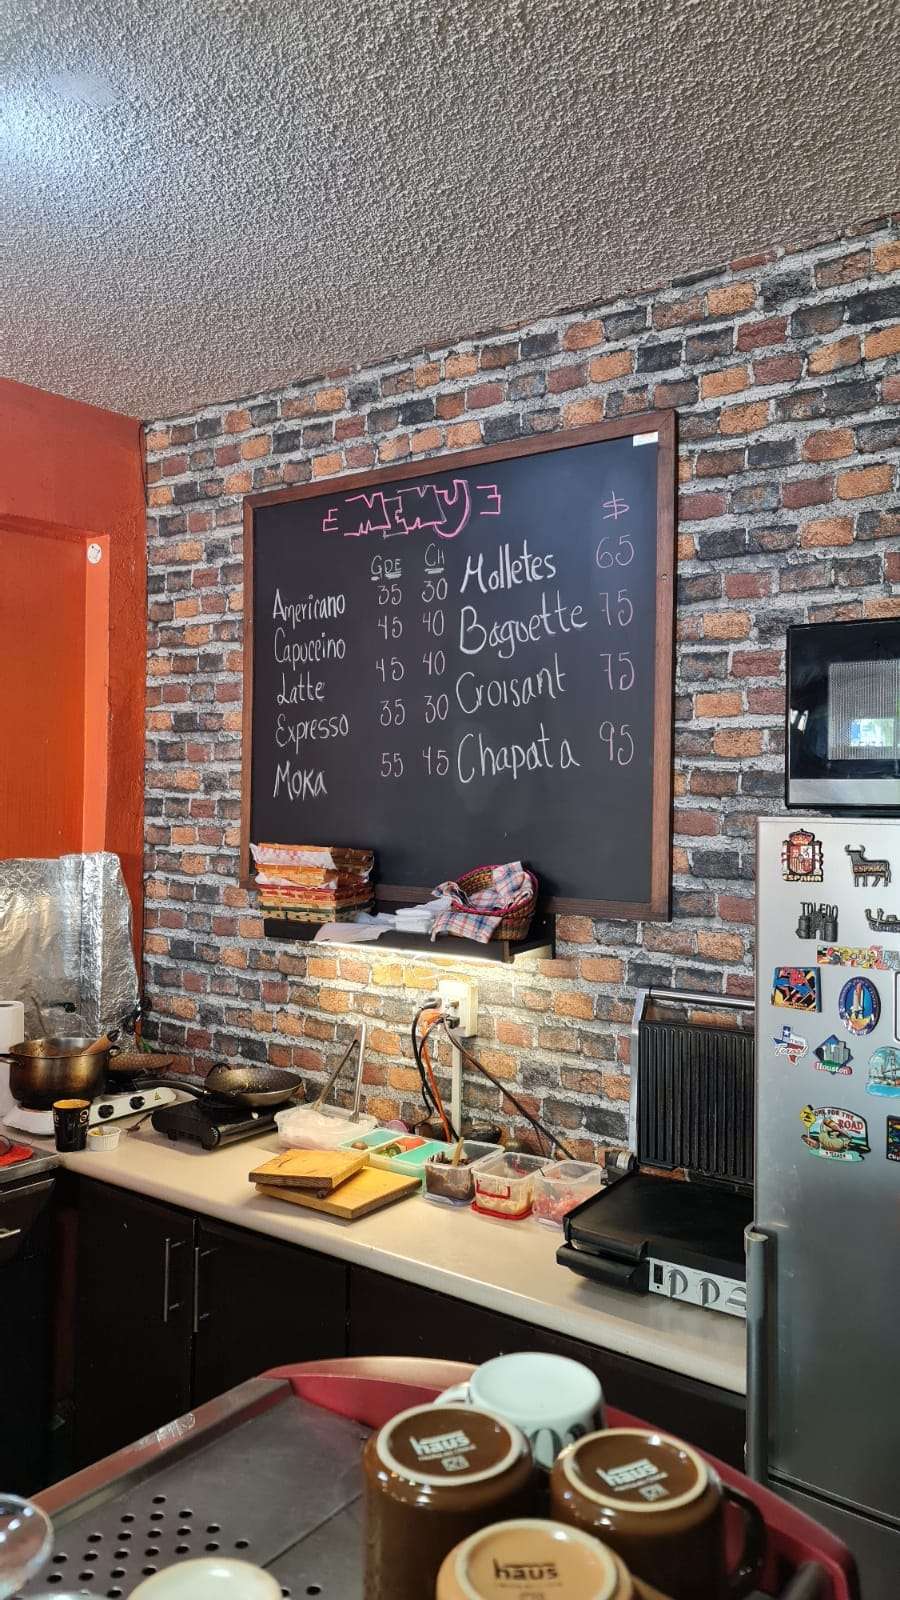 MENU
GDE CH
Americano 35 30
Capuccino 45 40
Latte 45 40
Expresso 35 30
Moka 55 45
$
Molletes 65
Baguette 75
Croisant 75
Chapata 95
ESPAÑA
ESPAÑA
TOLEDO
Texas
Houston
ONE FOR THE
ROAD
haus
haus
haus